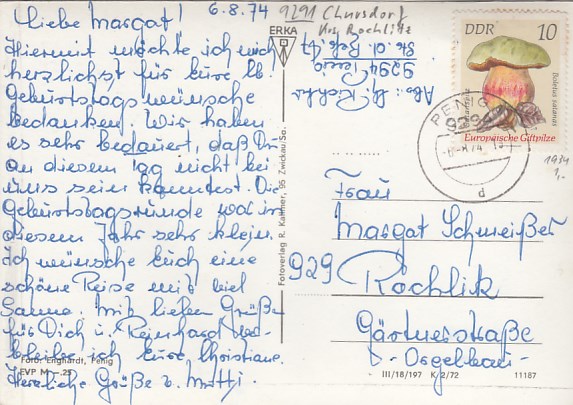 Liebe Margat!
6.8.74
9291 Chursdorf
Krs Rochlitz
Hiermit möchte ich mich
herzlichst für Eure lb.
Geburtstagswünsche
bedanken. Wir haben
es sehr bedauert, daß Du
an diesem Tag nicht bei
uns sein konntest. Die
Geburtstagsrunde war in
diesem Jahr sehr klein.
Ich wünsche Euch eine
schöne Reise mit viel
Sonne. Mit lieben Grüßen
für Dich u. Reinhard ver-
bleibe ich Eure Christiane.
Herzliche Grüße v. Mutti.
Foto: Enghardt, Penig
EVP M -.25
ERKA
Fotoverlag R. Kallmer, 95 Zwickau/Sa.
Abs.: Richter
9294 Penig
DDR 10
Boletus satanas
Satanspilz
Europäische Giftpilze
PENIG
9294
d
1934
1,-
Frau
Margat Schneißer
929 Rochlitz
Gärtnerstraße
- Orgelbau -
III/18/197 K/2/72 11187